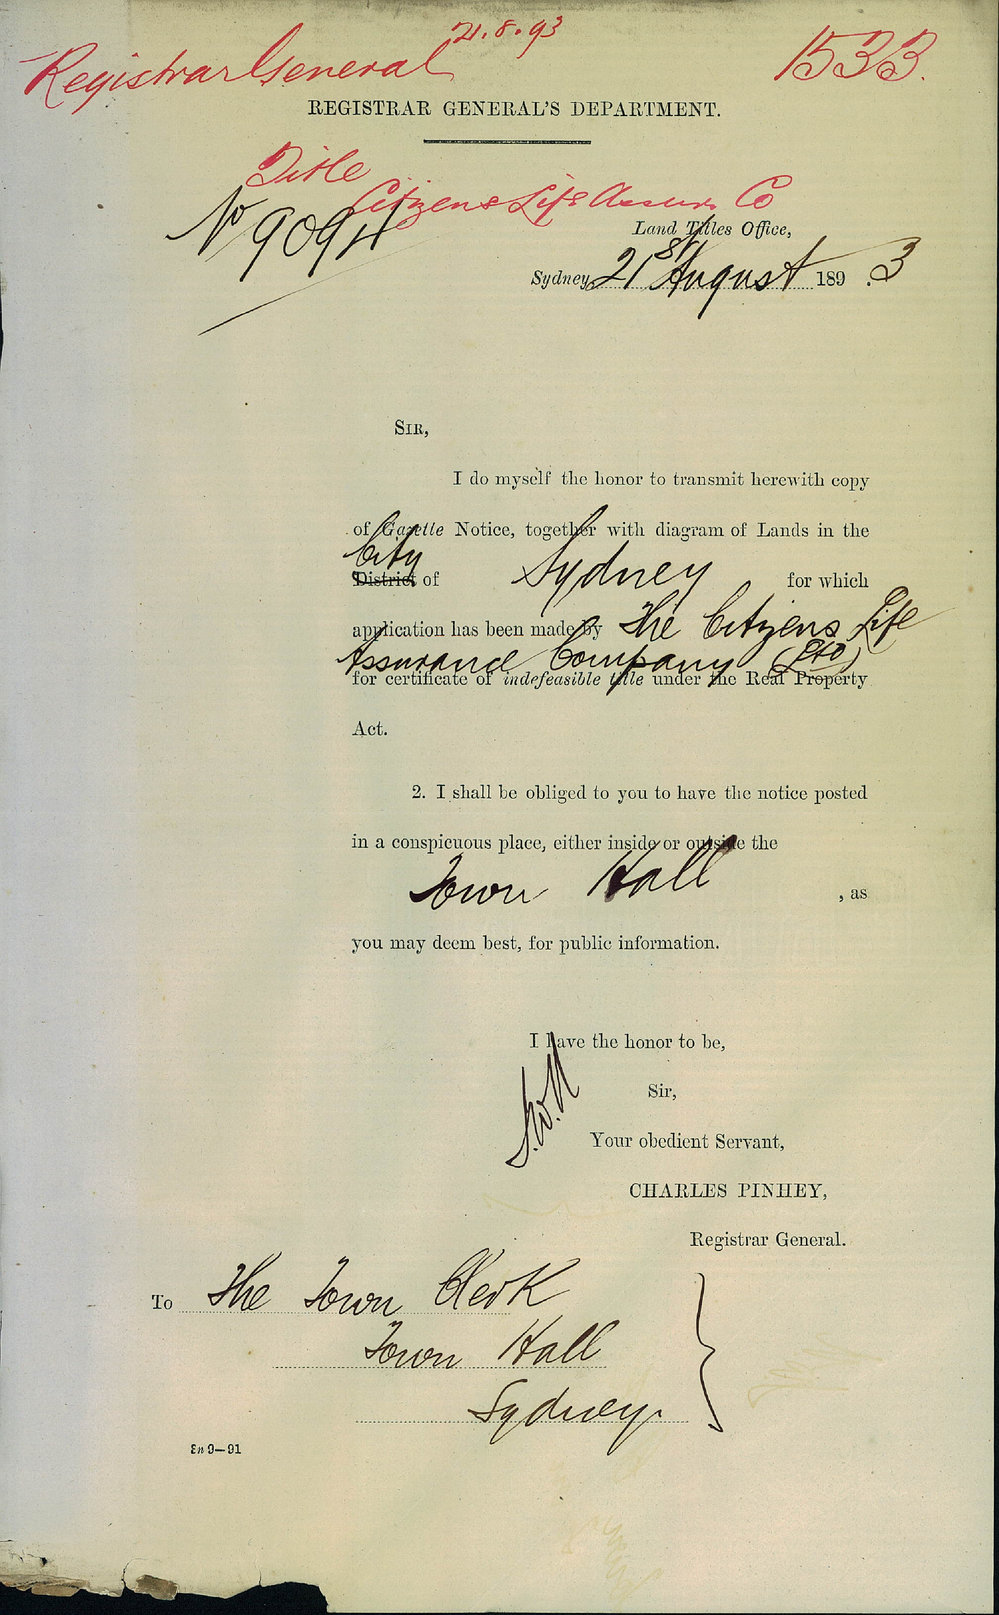 21.8.93
Registrar General 1533.
REGISTRAR GENERAL'S DEPARTMENT.
Title
Citizens Life Assur. Co
No 9094
Land Titles Office,
Sydney, 21st August 1893
SIR,
I do myself the honor to transmit herewith copy
of Gazette Notice, together with diagram of Lands in the
City
District of Sydney for which
application has been made by The Citizens Life
Assurance Company (Ltd)
for certificate of indefeasible title under the Real Property
Act.
2. I shall be obliged to you to have the notice posted
in a conspicuous place, either inside or outside the
Town Hall , as
you may deem best, for public information.
I have the honor to be,
Sir,
Your obedient Servant,
CHARLES PINHEY,
Registrar General.
To The Town Clerk
Town Hall
Sydney.
9—91